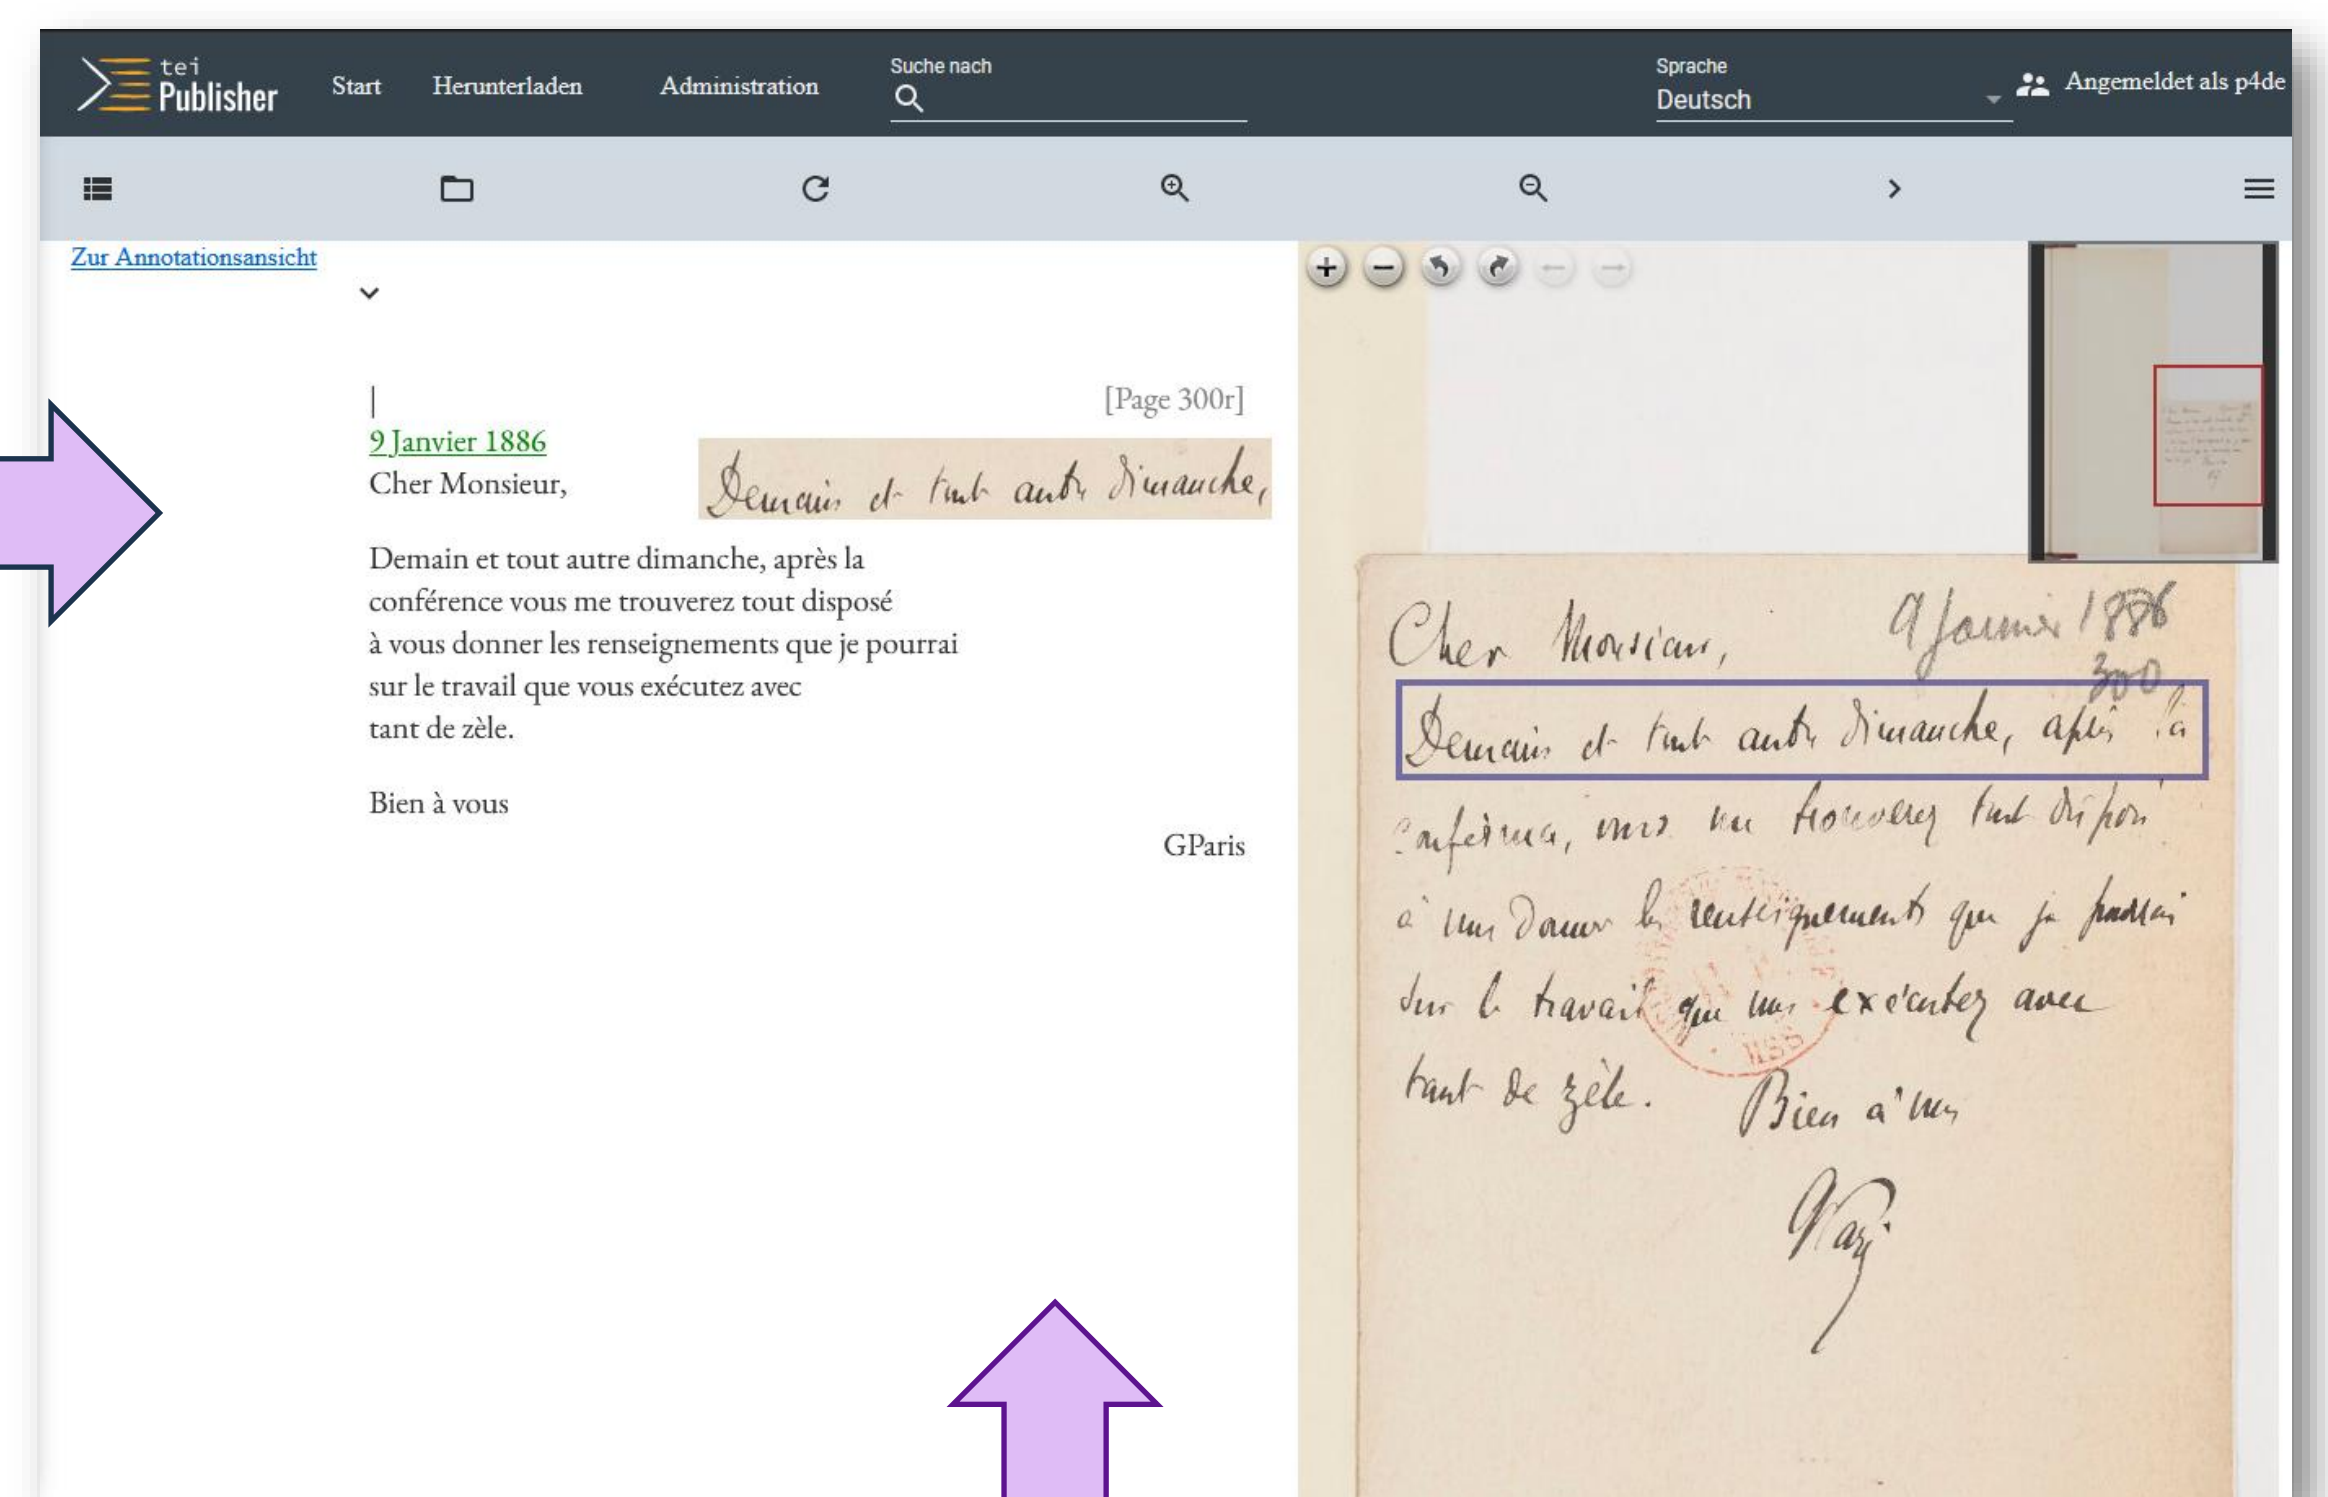 tei
Publisher
Start
Herunterladen
Administration
Suche nach
Sprache
Deutsch
Angemeldet als p4de
Zur Annotationsansicht
[Page 300r]
9 Janvier 1886
Cher Monsieur,
Demain et tout autre dimanche,
Demain et tout autre dimanche, après la
conférence vous me trouverez tout disposé
à vous donner les renseignements que je pourrai
sur le travail que vous exécutez avec
tant de zèle.
Bien à vous
GParis
Cher Monsieur,
9 Janvier 1886
300
Demain et tout autre dimanche, après la
conférence, vous me trouverez tout disposé
à vous donner les renseignements que je pourrai
sur le travail que vous exécutez avec
tant de zèle.
Bien à vous
GParis
MSS